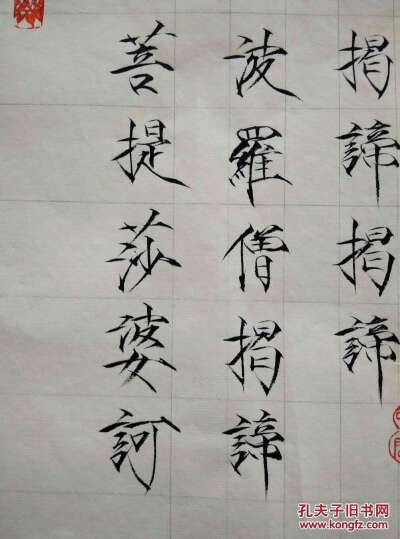 揭諦揭諦
波羅僧揭諦
菩提莎婆訶
孔夫子旧书网
www.kongfz.com